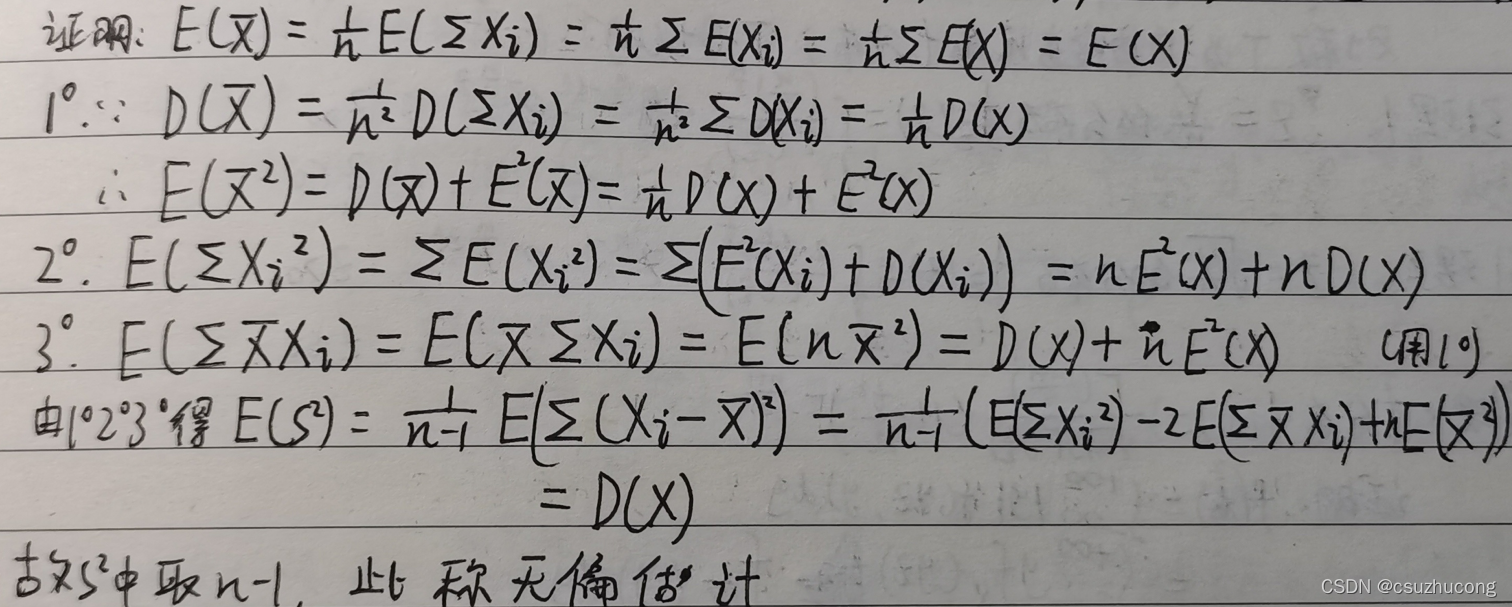 证明: E(X̄) = 1/n E(ΣXᵢ) = 1/n Σ E(Xᵢ) = 1/n Σ E(X) = E(X)
1° ∵ D(X̄) = 1/n² D(ΣXᵢ) = 1/n² Σ D(Xᵢ) = 1/n D(X)
∴ E(X̄²) = D(X̄) + E²(X̄) = 1/n D(X) + E²(X)
2°. E(ΣXᵢ²) = Σ E(Xᵢ²) = Σ(E²(Xᵢ) + D(Xᵢ)) = n E²(X) + n D(X)
3°. E(Σ X̄Xᵢ) = E(X̄ ΣXᵢ) = E(n X̄²) = D(X) + n E²(X) (用1°)
由1°2°3°得 E(S²) = 1/(n-1) E(Σ(Xᵢ - X̄)²) = 1/(n-1) (E(ΣXᵢ²) - 2E(Σ X̄ Xᵢ) + nE(X̄²))
= D(X)
故S²中取n-1, 此称无偏估计
CSDN @csuzhucong